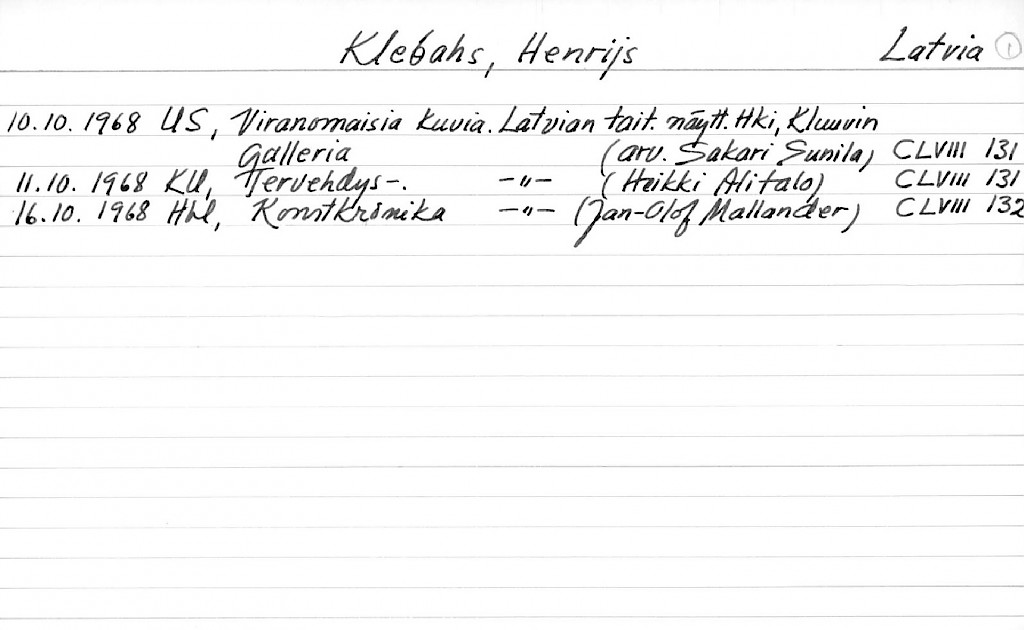 Klebahs, Henrijs Latvia 1
10.10. 1968 US, Viranomaisia kuvia. Latvian tait. näytt. Hki, Kluuvin
Galleria (arv. Sakari Sunila) CLVIII 131
11.10. 1968 KU, Tervehdys-. -"- (Heikki Alitalo) CLVIII 131
16.10. 1968 Hbl, Konstkrönika -"- (Jan-Olof Mallander) CLVIII 132